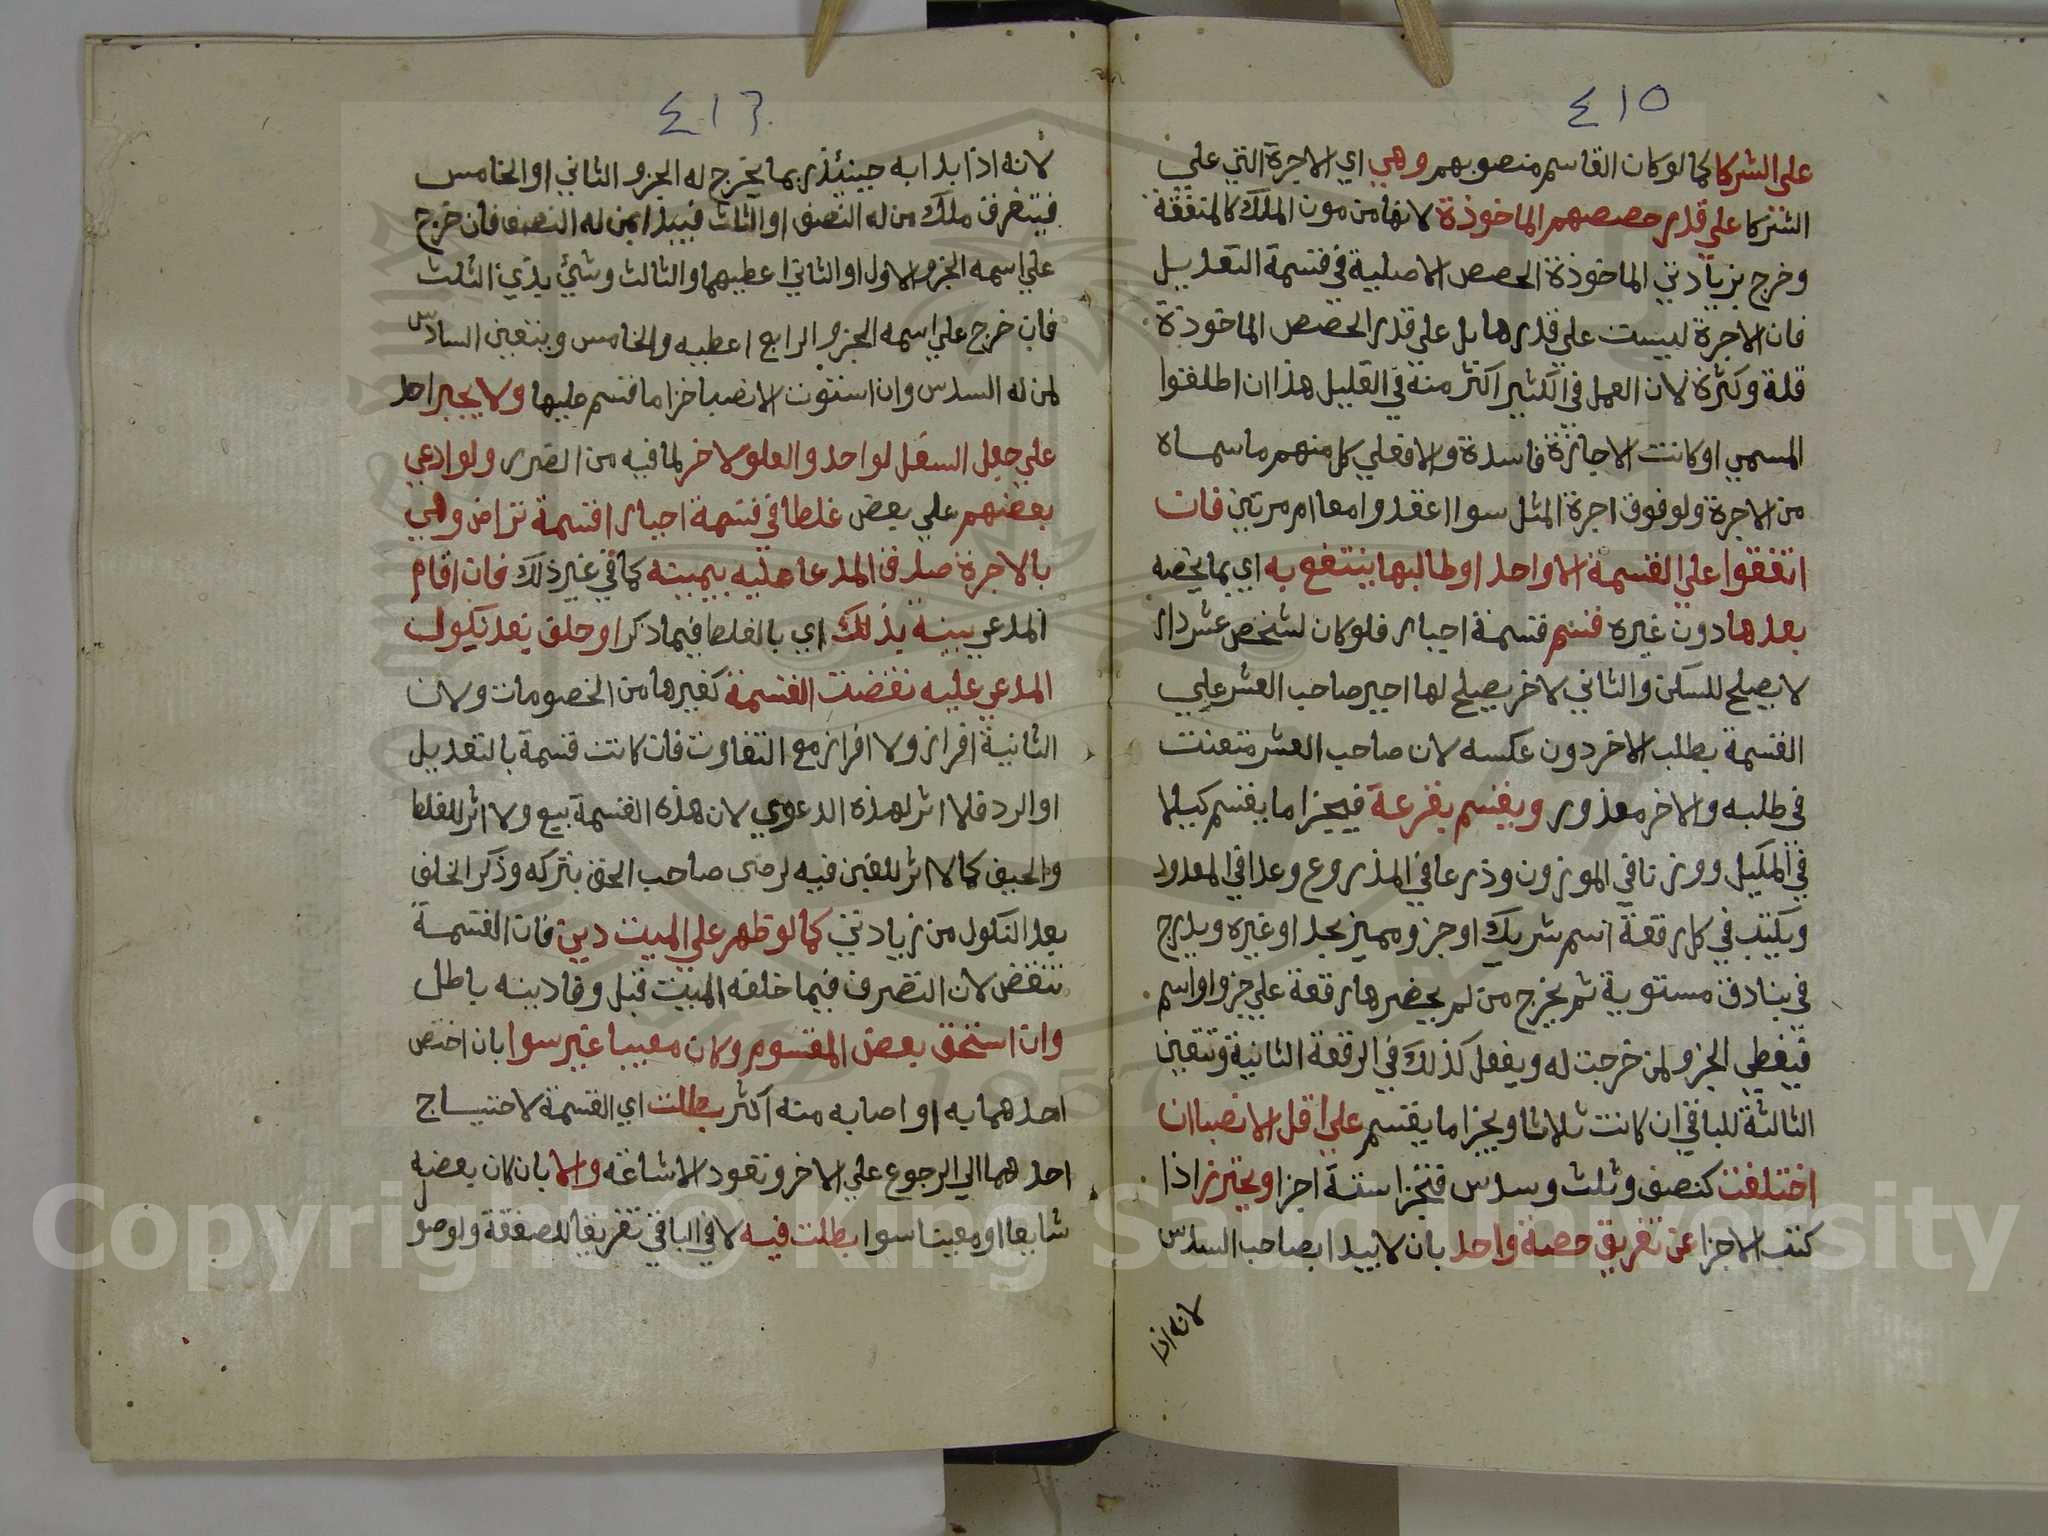 ٤١٥
على الشركا كما لو كان القاسم منصوبهم وهي اي الاجرة التي على
الشركا على قدر حصصهم الماخوذة لانها من مون الملك كالمنفقة
وخرج بزيادتي الماخوذة الحصص الاصلية في قسمة التعديل
فان الاجرة ليست على قدرها بل على قدر الحصص الماخوذة
قلة وكثرة لان العمل في الكثير اكثر منه في القليل هذا ان اطلقوا
المسمي او كانت الاجارة فاسدة والا فعلي كل منهم ما سماه
من الاجرة ولو فوق اجرة المثل سوا اعقدوا معا ام مرتين فان
اتفقوا على القسمة الا واحد او طالبها ينتفع به اي بما يخصه
بعدها دون غيره قسم قسمة اجبار فلو كان لشخص عشر دار
لا يصلح للسكن والثاني لاخر يصلح لها اجبر صاحب العشر على
القسمة بطلب الاخر دون عكسه لان صاحب العشر متعنت
في طلبه والاخر معذور ويقسم بقرعة فيجزا ما يقسم كيلا
في المكيل ووزنا في الموزون وذرعا في المذروع وعدا في المعدود
ويكتب في كل رقعة اسم شريك او جزو مميز بحد او غيره ويدرج
في بنادق مستوية ثم يخرج من لم يحضرها رقعة على جزو او اسم
فيعطي الجزو لمن خرجت له ويفعل كذلك في الرقعة الثانية وتتعين
الثالثة للباقي ان كانت ثلاثا ويجزا ما يقتسم على اقل الانصبا ان
اختلفت كنصف وثلث وسدس فتجزا ستة اجزا ويحترز اذا
كتب الاجزا عن تفريق حصة واحد بان لا يبدا بصاحب السدس
لانه اذا
٤١٦
لانه اذا بدا به حينئذ ربما يخرج له الجزو الثاني او الخامس
فيتفرق ملك من له النصف او الثلث فيبدا بمن له النصف فان خرج
على اسمه الجزو الاول او الثاني اعطيهما والثالث وشي بذي الثلث
فان خرج على اسمه الجزو الرابع اعطيه والخامس ويتعين السادس
لمن له السدس وان استوت الانصبا خزاما قسم عليها ولا يجبر احد
على جعل السفل لواحد والعلو لاخر لما فيه من الضرر ولو ادعي
بعضهم على بعض غلطا في قسمة اجبار او قسمة تراض وهي
بالاجرة صدق المدعا عليه بيمينه كما في غير ذلك فان اقام
المدعي بينة بذلك اي بالغلط فيما ذكر او حلف بعد نكول
المدعي عليه نقضت القسمة كغيرها من الخصومات ولان
الثانية افراز ولا افراز مع التفاوت فان كانت قسمة بالتعديل
او الرد فلا اثر لهذه الدعوي لان هذه القسمة بيع ولا اثر للغلط
والحيف كما لا اثر للغبن فيه لرضى صاحب الحق بتركه وذكر الحلف
بعد النكول من زيادتي كما لو ظهر على الميت دين فان القسمة
تنقض لان التصرف فيما خلفه الميت قبل وفا دينه باطل
وان استحق بعض المقسوم وكان معيبا غير سوا بان اختص
احدهما به او اصابه منه اكثر بطلت اي القسمة لاحتياج
احدهما الي الرجوع على الاخر وتعود الاشاعة والا بان كان بعضه
شايعا او معينا سوا بطلت فيه لا في الباقي تفريقا للصفقة ولو صو
Copyright © King Saud University